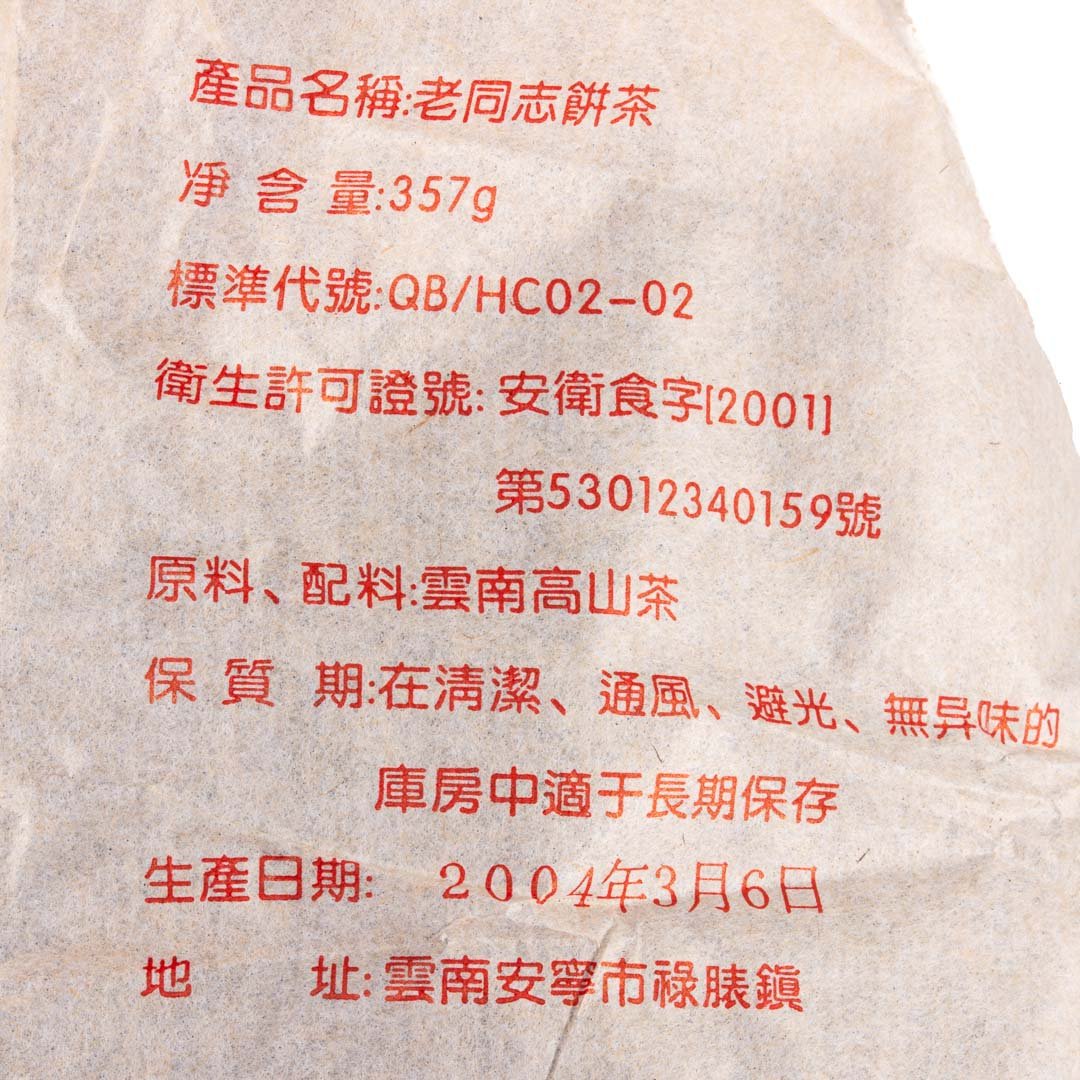 產品名稱:老同志餅茶
凈含量:357g
標準代號:QB/HC02-02
衛生許可證號:安衛食字[2001]
第53012340159號
原料、配料:雲南高山茶
保質期:在清潔、通風、避光、無异味的
庫房中適于長期保存
生產日期: 2004年3月6日
地址:雲南安寧市祿脿鎮